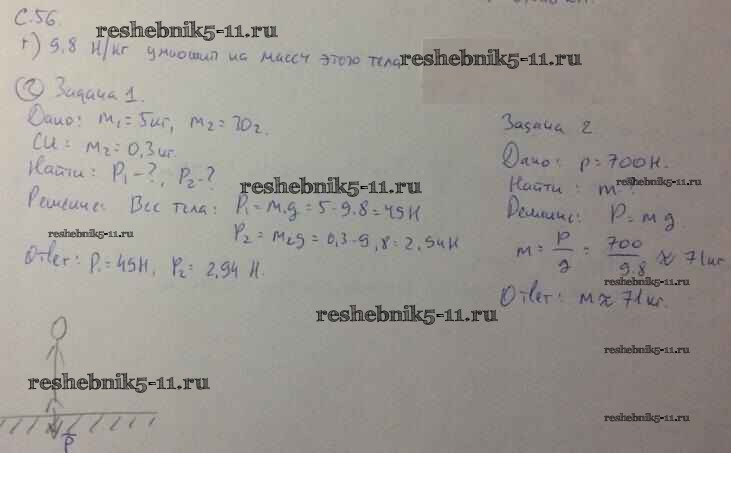 С.56.
reshebnik5-11.ru
г) 9.8 Н/кг умножил на массу этого тела
reshebnik5-11.ru
② Задача 1.
Дано: m₁=5кг, m₂=30г.
СИ: m₂=0,3кг.
Найти: P₁-?, P₂-?
reshebnik5-11.ru
Решение: Вес тела: P₁=m₁g=5·9.8=49Н
P₂=m₂g=0,3·9,8=2,94Н
reshebnik5-11.ru
Ответ: P₁=49Н, P₂=2,94 Н.
Задача 2
Дано: p=700Н.
Найти: m-?
reshebnik5-11.ru
Решение: P=mg.
m=P/g=700/9.8≈71кг
reshebnik5-11.ru
Ответ: m≈71кг.
reshebnik5-11.ru
reshebnik5-11.ru
reshebnik5-11.ru
reshebnik5-11.ru
P